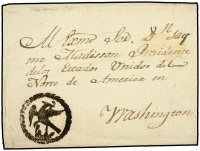 Al Exmo Sor. Dn. Jay
me Madisson Presidente
de los Estados Unidos del
Norte de America en
Washington